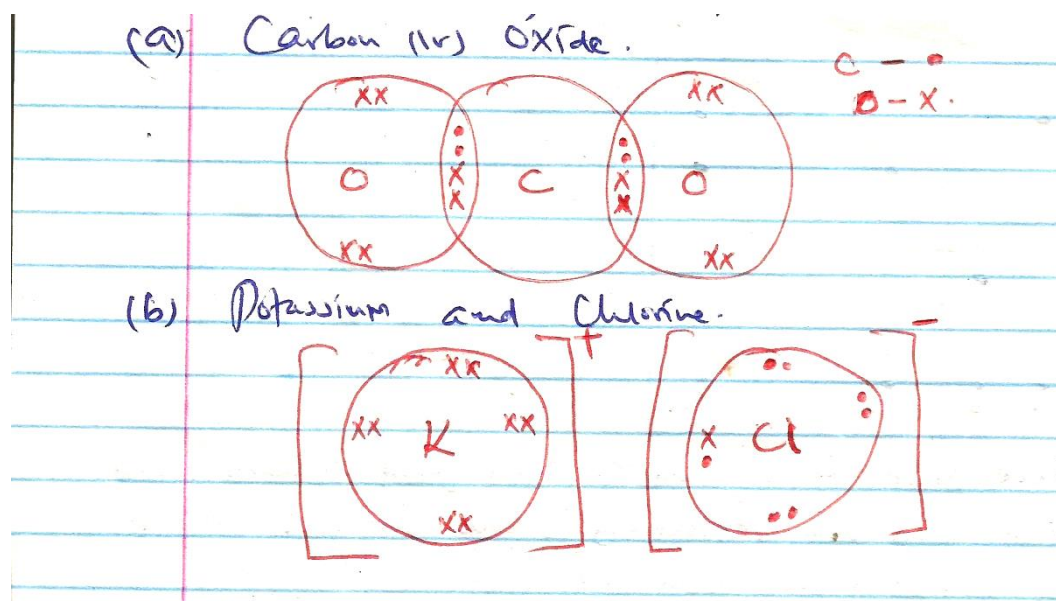 (a) Carbon (IV) Oxide.
C - •
O - x.
xx xx
• •
• •
O x C x O
x x
xx xx
(b) Potassium and Chlorine.
+ -
xx ••
xx K xx x Cl ••
•
xx ••